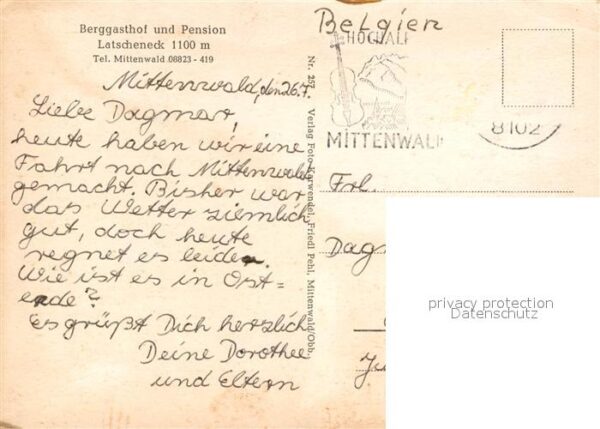 Berggasthof und Pension
Latscheneck 1100 m
Tel. Mittenwald 08823 - 419
Mittenwald, den 26.7.
Liebe Dagmar,
heute haben wir eine
Fahrt nach Mittenwald
gemacht. Bisher war
das Wetter ziemlich
gut, doch heute
regnet es leider.
Wie ist es in Ost=
ende?
Es grüßt Dich herzlich
Deine Dorothee
und Eltern
Nr. 257 Verlag Foto-Karwendel, Friedl Pehl, Mittenwald/Obb.
Belgien
HOCHALP
MITTENWALD
8102
Frl.
Dagm
privacy protection
Datenschutz